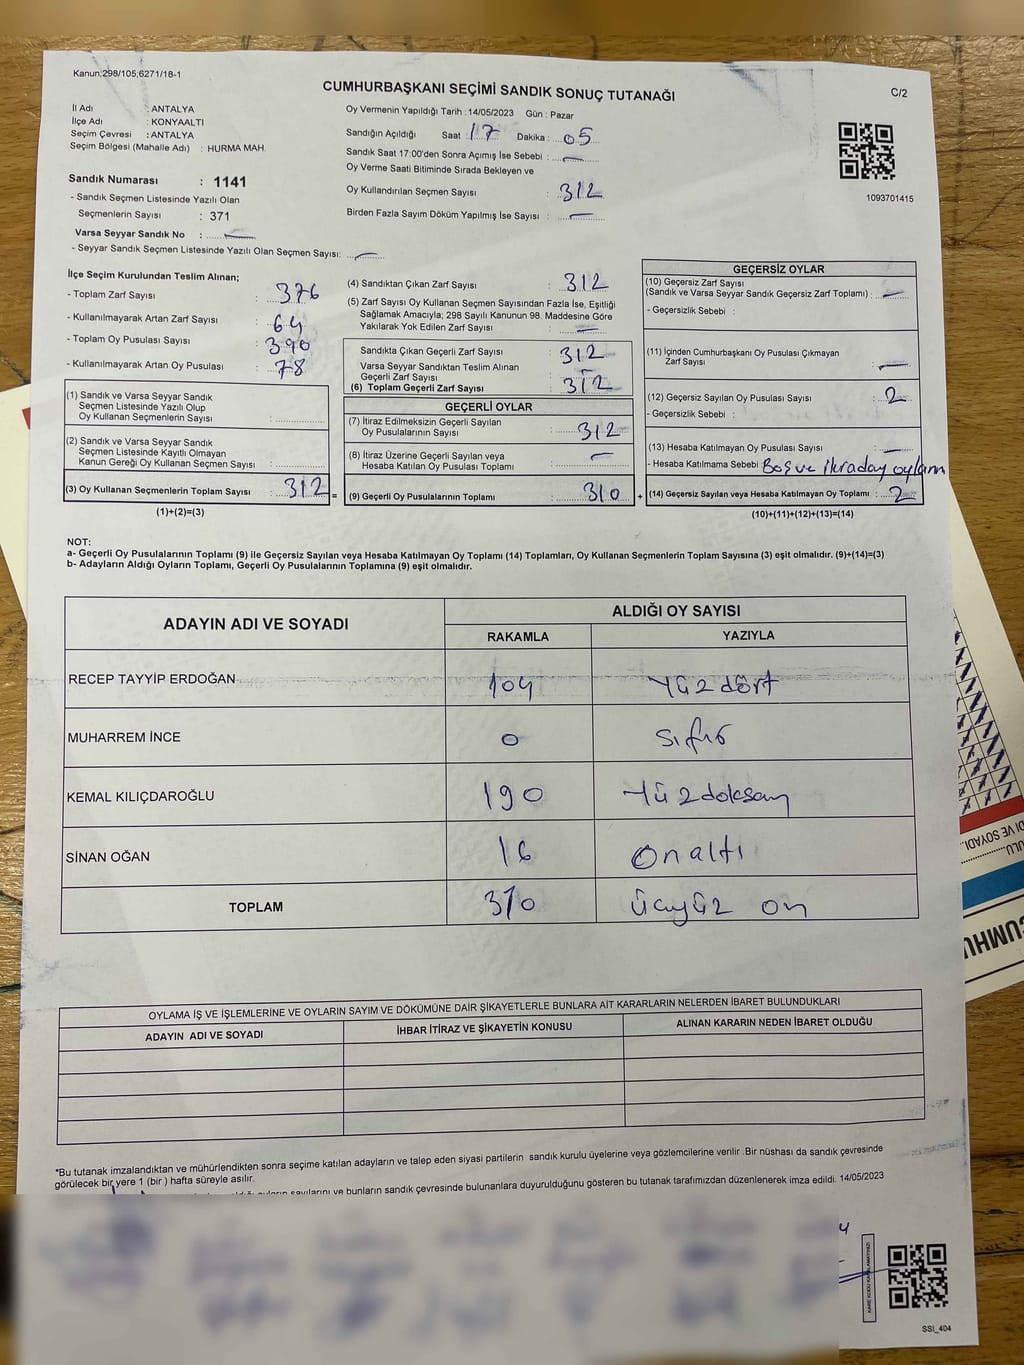 Kanun;298/105;6271/18-1
CUMHURBAŞKANI SEÇİMİ SANDIK SONUÇ TUTANAĞI
C/2
İl Adı : ANTALYA
İlçe Adı : KONYAALTI
Seçim Çevresi : ANTALYA
Seçim Bölgesi (Mahalle Adı) : HURMA MAH.
Sandık Numarası : 1141
- Sandık Seçmen Listesinde Yazılı Olan
Seçmenlerin Sayısı : 371
Varsa Seyyar Sandık No :
- Seyyar Sandık Seçmen Listesinde Yazılı Olan Seçmen Sayısı:
Oy Vermenin Yapıldığı Tarih : 14/05/2023 Gün : Pazar
Sandığın Açıldığı Saat : 17 Dakika : 05
Sandık Saat 17:00'den Sonra Açımış İse Sebebi :
Oy Verme Saati Bitiminde Sırada Bekleyen ve
Oy Kullandırılan Seçmen Sayısı : 312
Birden Fazla Sayım Döküm Yapılmış İse Sayısı :
1093701415
İlçe Seçim Kurulundan Teslim Alınan;
- Toplam Zarf Sayısı : 376
- Kullanılmayarak Artan Zarf Sayısı : 64
- Toplam Oy Pusulası Sayısı : 390
- Kullanılmayarak Artan Oy Pusulası : 78
(1) Sandık ve Varsa Seyyar Sandık
Seçmen Listesinde Yazılı Olup
Oy Kullanan Seçmenlerin Sayısı :
(2) Sandık ve Varsa Seyyar Sandık
Seçmen Listesinde Kayıtlı Olmayan
Kanun Gereği Oy Kullanan Seçmen Sayısı :
(3) Oy Kullanan Seçmenlerin Toplam Sayısı : 312 =
(1)+(2)=(3)
(4) Sandıktan Çıkan Zarf Sayısı : 312
(5) Zarf Sayısı Oy Kullanan Seçmen Sayısından Fazla İse, Eşitliği
Sağlamak Amacıyla; 298 Sayılı Kanunun 98. Maddesine Göre
Yakılarak Yok Edilen Zarf Sayısı :
Sandıkta Çıkan Geçerli Zarf Sayısı : 312
Varsa Seyyar Sandıktan Teslim Alınan
Geçerli Zarf Sayısı :
(6) Toplam Geçerli Zarf Sayısı : 312
GEÇERLİ OYLAR
(7) İtiraz Edilmeksizin Geçerli Sayılan
Oy Pusulalarının Sayısı : 312
(8) İtiraz Üzerine Geçerli Sayılan veya
Hesaba Katılan Oy Pusulası Toplamı :
(9) Geçerli Oy Pusulalarınnın Toplamı : 310 +
GEÇERSİZ OYLAR
(10) Geçersiz Zarf Sayısı
(Sandık ve Varsa Seyyar Sandık Geçersiz Zarf Toplamı) :
- Geçersizlik Sebebi :
(11) İçinden Cumhurbaşkanı Oy Pusulası Çıkmayan
Zarf Sayısı :
(12) Geçersiz Sayılan Oy Pusulası Sayısı : 2
- Geçersizlik Sebebi :
(13) Hesaba Katılmayan Oy Pusulası Sayısı :
- Hesaba Katılmama Sebebi Boş ve
(14) Geçersiz Sayılan veya Hesaba Katılmayan Oy Toplamı : 2
(10)+(11)+(12)+(13)=(14)
NOT:
a- Geçerli Oy Pusulalarının Toplamı (9) ile Geçersiz Sayılan veya Hesaba Katılmayan Oy Toplamı (14) Toplamları, Oy Kullanan Seçmenlerin Toplam Sayısına (3) eşit olmalıdır. (9)+(14)=(3)
b- Adayların Aldığı Oyların Toplamı, Geçerli Oy Pusulalarının Toplamına (9) eşit olmalıdır.
ADAYIN ADI VE SOYADI
ALDIĞI OY SAYISI
RAKAMLA YAZIYLA
RECEP TAYYİP ERDOĞAN 104 Yüz dört
MUHARREM İNCE 0 Sıfır
KEMAL KILIÇDAROĞLU 190 Yüzdoksan
SİNAN OĞAN 16 Onaltı
TOPLAM 310 Üçyüz on
OYLAMA İŞ VE İŞLEMLERİNE VE OYLARIN SAYIM VE DÖKÜMÜNE DAİR ŞİKAYETLERLE BUNLARA AİT KARARLARIN NELERDEN İBARET BULUNDUKLARI
ADAYIN ADI VE SOYADI
İHBAR İTİRAZ VE ŞİKAYETİN KONUSU
ALINAN KARARIN NEDEN İBARET OLDUĞU
*Bu tutanak imzalandıktan ve mühürlendikten sonra seçime katılan adayların ve talep eden siyasi partilerin sandık kurulu üyelerine veya gözlemcilerine verilir .Bir nüshası da sandık çevresinde
görülecek bir yere 1 (bir ) hafta süreyle asılır.
sayılarını ve bunların sandık çevresinde bulunanlara duyurulduğunu gösteren bu tutanak tarafımızdan düzenlenerek imza edildi. 14/05/2023
SSI_404
DI VE SOYADI
CUMHU